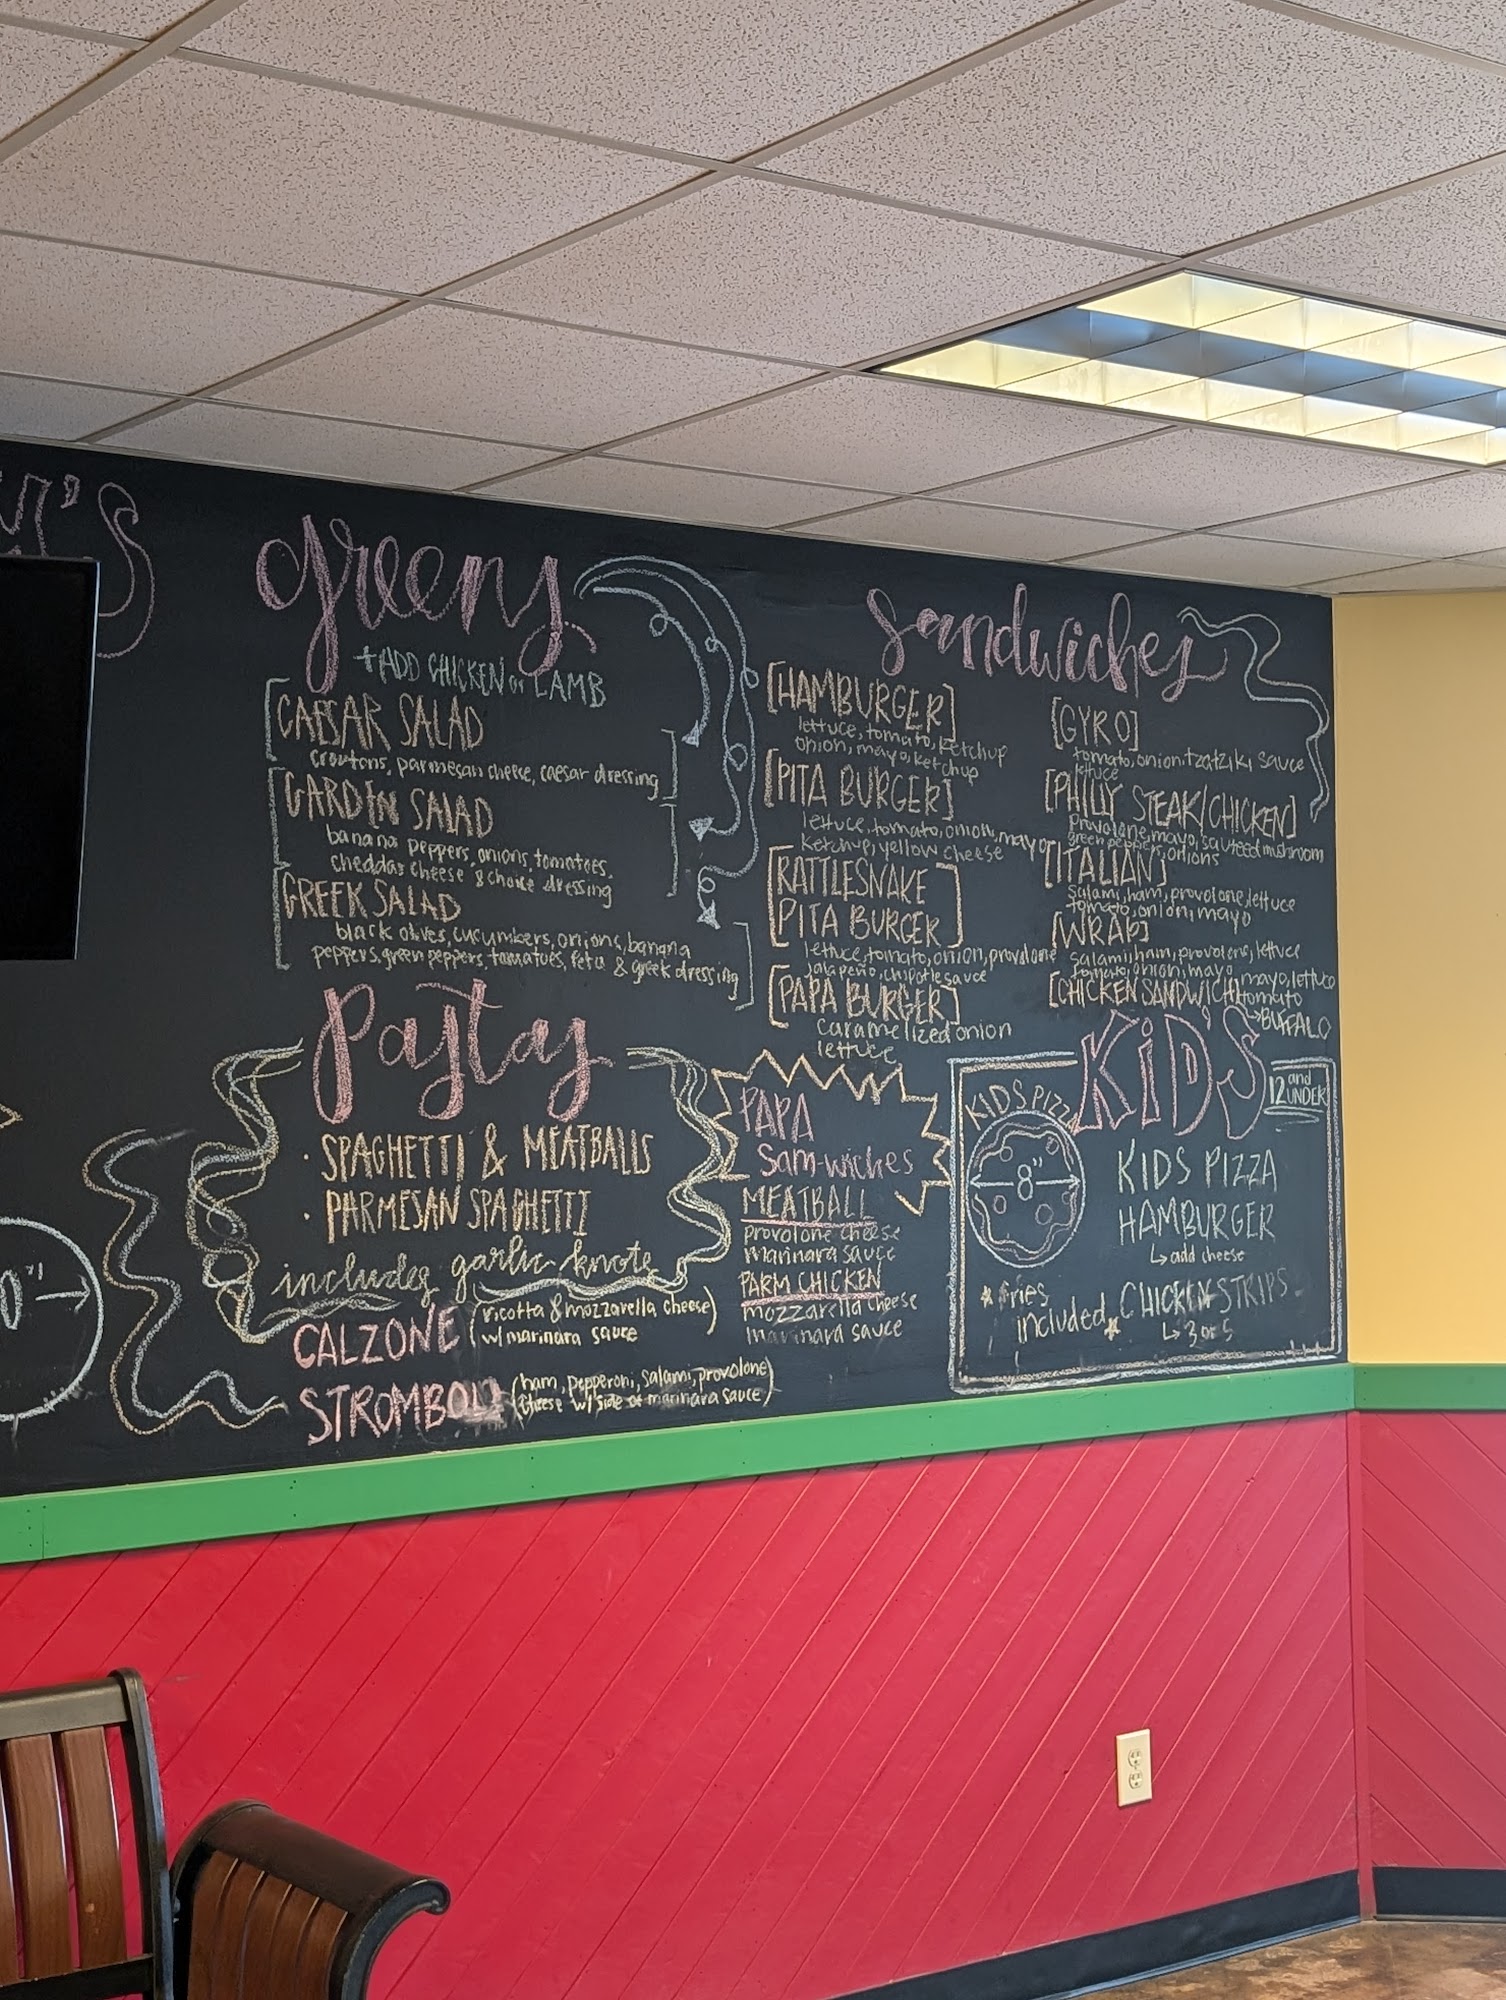 M'S
greens
+ADD CHICKEN or LAMB
[CAESAR SALAD
croutons, parmesan cheese, caesar dressing]
[GARDEN SALAD
banana peppers, onions, tomatoes,
cheddar cheese & choice dressing]
[GREEK SALAD
black olives, cucumbers, onions, banana
peppers, green peppers, tomatoes, feta & greek dressing]
pastas
· SPAGHETTI & MEATBALLS
· PARMESAN SPAGHETTI
includes garlic knots
CALZONE (ricotta & mozzarella cheese)
w/ marinara sauce
STROMBOLI (ham, pepperoni, salami, provolone)
cheese w/ side of marinara sauce)
0" →
sandwiches
[HAMBURGER]
lettuce, tomato, ketchup
onion, mayo, ketchup
[PITA BURGER]
lettuce, tomato, onion, mayo
ketchup, yellow cheese
[RATTLESNAKE
PITA BURGER]
lettuce, tomato, onion, provolone
jalapeño, chipotle sauce
[PAPA BURGER]
caramelized onion
lettuce
[GYRO]
tomato, onion, tzatziki sauce
lettuce
[PHILLY STEAK/CHICKEN]
provolone, mayo, sauteed mushroom
green peppers, onions
[ITALIAN]
salami, ham, provolone, lettuce
tomato, onion, mayo
[WRAP]
salami, ham, provolone, lettuce
tomato, onion, mayo
[CHICKEN SANDWICH] mayo, lettuce
tomato
→BUFFALO
PAPA
Sam-wiches
MEATBALL
provolone cheese
marinara sauce
PARM CHICKEN
mozzarella cheese
marinara sauce
KiD'S
12 and
UNDER
KIDS PIZZ
8"
KIDS PIZZA
HAMBURGER
↳ add cheese
CHICKEN STRIPS
↳ 3 or 5
*fries
included*